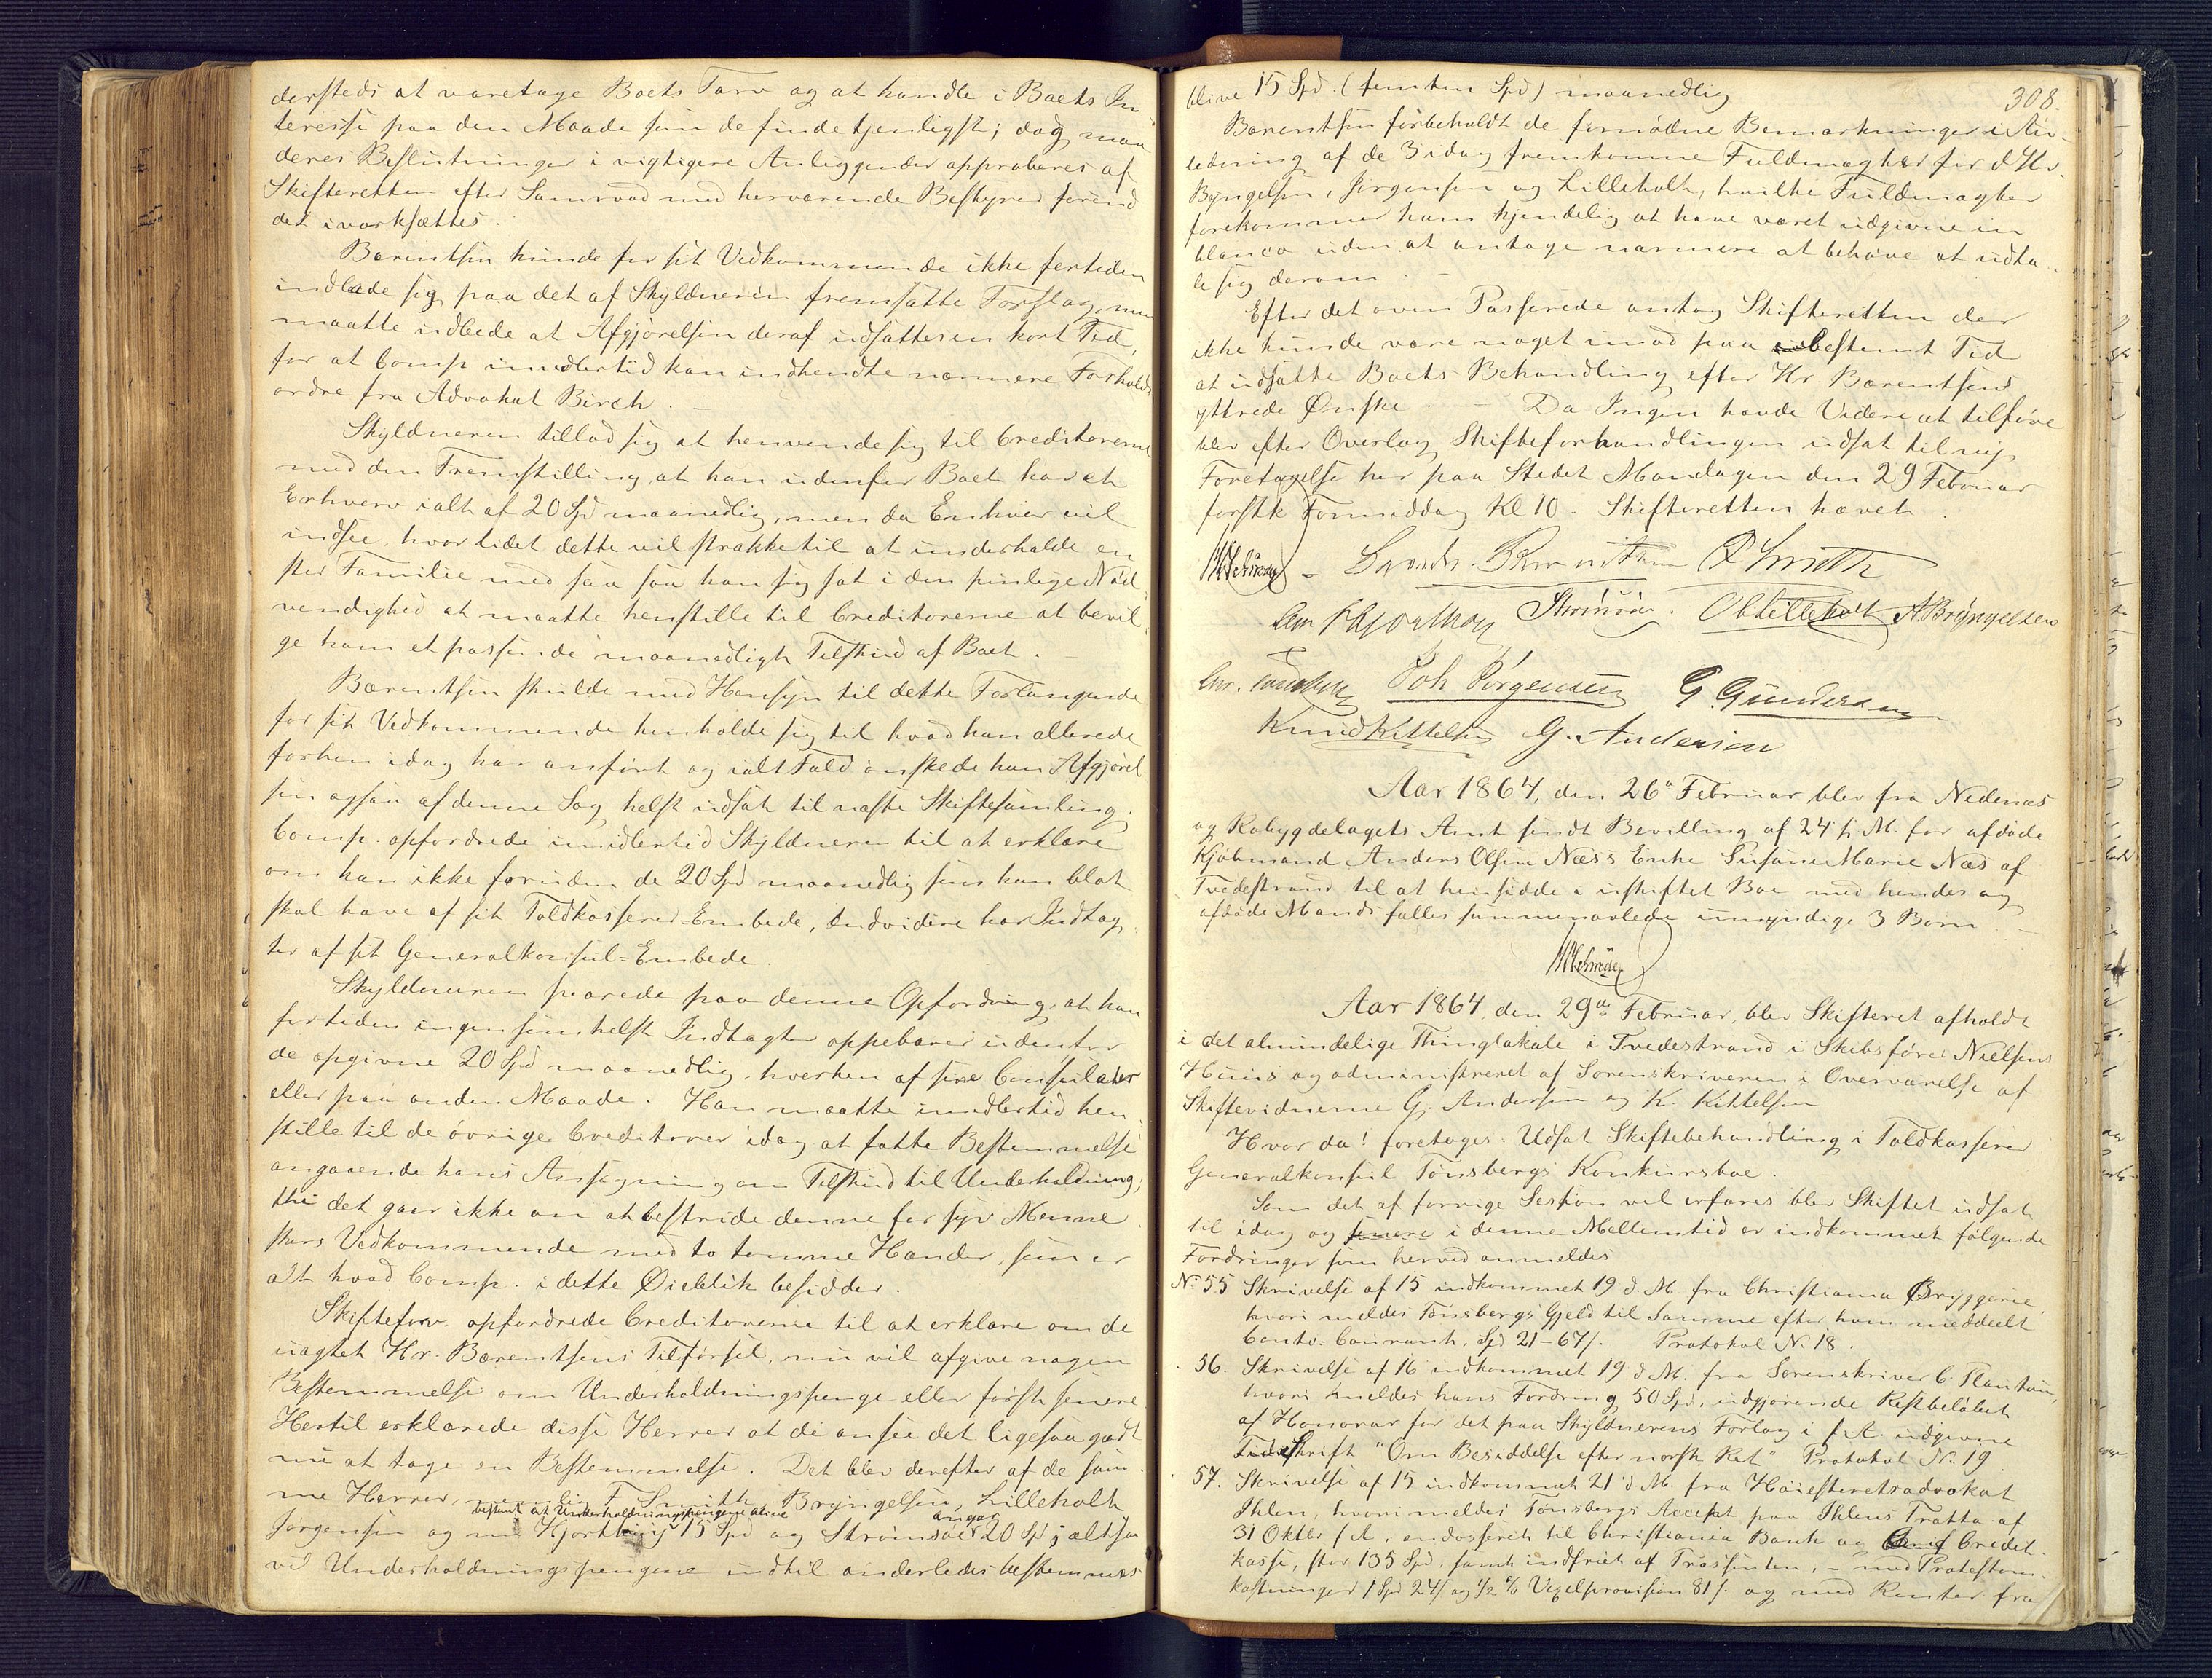 dersteds at varetage Boets Tarv og at handle i Boets In
teresse paa den Maade som de finde tjenligst; dog maa
deres Beslutninger i vigtigere Anliggender approberes af
Skifteretten efter Samraad med herværende Bestyrer førend
det iværksættes.
Børentsen kunde for sit Vedkommende ikke fortiden
indlade sig paa det af Skyldneren fremsatte Forslag, men
maatte udbede at Afgjørelsen deraf udsættes en kort Tid,
for at Comp imidlertid kan indhendte nærmere Forholds
ordre fra Advokat Birch. —
Skyldneren tillod sig at henvende sig til Creditorerne
med den Fremstilling, at han udenfor Boet har et
Erhverv ialt af 20 Spd maanedlig, men da Enhver vil
indsee, hvor lidet dette vil strække til at underholde en
stor Familie med saa saa han sig sat i den pinlige Nød
vendighed at maatte henstille til Creditorerne at bevil
ge ham et passende maanedligt Tilskud af Boet. —
Børentsen skulde med Hensyn til dette Forlangende
for sit Vedkommende henholde sig til hvad han allerede
forhen idag har anført og ialtFald ønskede han Afgjørel
sen ogsaa af denne Sag helst udsat til næste Skiftesamling.
Comp. opfordrede imidlertid Skyldneren til at erklære
om han ikke foruden de 20 Spd maanedlig som han blot
skal have af sit Toldkasserer-Embede, endvidere har Indtæg
ter af sit Generalkonsul=Embede.
Skyldneren svarede paa denne Opfordring, at han
for tiden ingensomhelst Indtægter oppebærer udenfor
de opgivne 20 Spd maanedlig, hverken af sine Consulater
eller paa anden Maade. Han maatte imidlertid hen
stille til de øvrige Creditorer idag at fatte Bestemmelse
angaaende hans Ansøgning om Tilskud til Underholdning;
thi det gaar ikke an at bestride denne for syv Menne
skers Vedkommende med to tomme Hænder, som er
alt hvad Comp. i dette Øieblik besidder.
Skifteforv. opfordrede Creditorerne til at erklære om de
uagtet Hr. Børentsens Tilførsel, nu vil afgive nogen
Bestemmelse om Underholdningspenge eller først senere
Hertil erklærede disse Herrer at de ansee det ligesaa godt
nu at tage en Bestemmelse. Det blev derefter af de sam
me Herrer, Smith, Bryngelsen, Lilleholt
bestemt at Underholdningspengene blive
Jørgensen og Hjorthøy 15 Spd og Strømsøe 20 Spd; altsaa
vil Underholdningspengene indtil anderledes bestemmes
308.
blive 15 Spd. (femten Spd) maanedlig
Børentsen forbeholdt de fornødne Bemærkninger i An-
ledning af de 3 idag fremkomne Fuldmagter for d'Hr.
Byngelsen, Jørgensen og Lilleholt, hvilke Fuldmagter
forekommer ham kjendelig at have været udgivne in
blanco uden at antage nærmere at behøve at udta-
le sig derom. —
Efter det oven Passerede antog Skifteretten der
ikke kunde være noget imod paa ubestemt Tid
at udsætte Boets Behandling efter Hr. Børentsens
yttrede Ønske. — Da Ingen havde Videre at tilføre
blev efter Overlæg Skifteforhandlingen udsat til ny
Foretagelse her paa Stedet Mandagen den 29 Februar
førstk Formiddag Kl 10. Skifteretten hævet.
Schrøder – Børentsen Smith
Hjorthøy Strømsøe. Lilleholt A Bryngelsen
Chr. Joh Jørgensen G. Gundersen
Knud Kittelsen G. Andersen
Aar 1864, den 26de Februar blev fra Nedenæs
og Robygdelagets Amt sendt Bevilling af 24 f. M. for afdøde
Kjøbmand Anders Olsen Næss Enke Susanne Marie Næs af
Tvedestrand til at hensidde i uskiftet Boe med hendes og
afdøde Mands fælles sammenavlede umyndige 3 Børn. —
Schrøder
Aar 1864, den 29de Februar, blev Skifteret afholdt
i det almindelige Thinglokale i Tvedestrand i Skibsfører Nielsens
Huus og administreret af Sorenskriveren i Overværelse af
Skiftevidnerne G. Andersen og K. Kittelsen
Hvor da! foretoges: Udsat Skiftebehandling i Toldkasserer
Generalkonsul Tønsbergs Konkursboe.
Som det af forrige Session vil erfares blev Skiftet udsat
til idag og senere i denne Mellemtid er indkommet følgende
Fordringer som herved anmeldes
No. 55 Skrivelse af 15 indkommet 19 d. M. fra Christiania Bryggerie,
hvori meldes Tønsbergs Gjeld til Samme efter ham meddeelt
Conto-Courant, Spd 21–67/. Protokol N. 18.
56. Skrivelse af 16 indkommet 19 d. M. fra Sorenskriver C.
hvori meldes hans Fordring 50 Spd, udgjørende Restbeløbet
af Honorar for det paa Skyldnerens Forlag i f. A. udgivne
Tidsskrift "Om Besiddelse efter norsk Ret" Protokol N. 19
57. Skrivelse af 15 indkommet 21 d. M. fra Høiesteretsadvokat
Ihlen, hvori meldes Tønsbergs Accept paa Ihlens Tratta af
31 Oktbr f. A., endosseret til Christiania Bank og Credit-
kasse, stor 135 Spd. samt indfriet af Trassenten, – med Protestom-
kostninger 1 Spd 24/ og 1/2 % Vexelprovision 81/. og med Renter fra